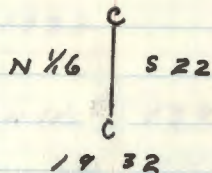 C
N 1/16 S 22
C
1932